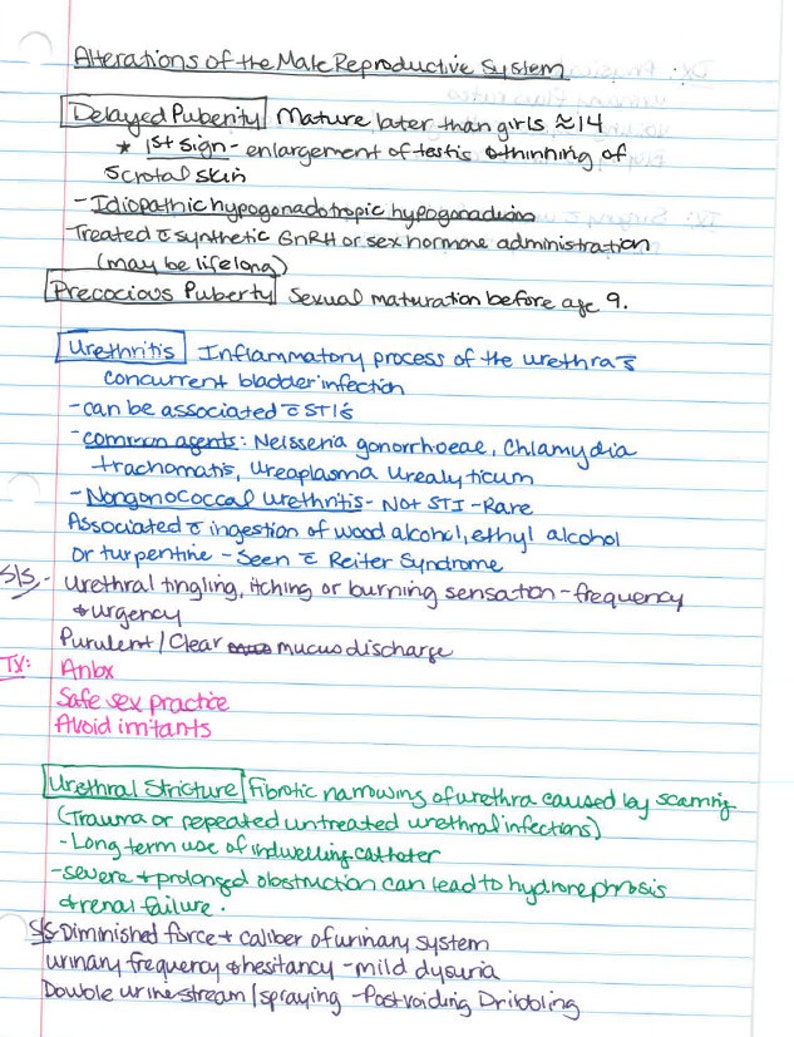 Alterations of the Male Reproductive System
Delayed Puberity Mature later than girls ≈14
* 1st sign - enlargement of testis & thinning of
scrotal skin
- Idiopathic hypogonadotropic hypogonadism
Treated c̄ synthetic GnRH or sex hormone administration
(may be lifelong)
Precocious Puberty Sexual maturation before age 9.
Urethritis Inflammatory process of the urethra s̄
concurrent bladder infection
- can be associated c̄ STI's
- common agents: Neisseria gonorrhoeae, Chlamydia
trachomatis, Ureaplasma Urealyticum
- Nongonococcal urethritis - Not STI - Rare
Associated c̄ ingestion of wood alcohol, ethyl alcohol
or turpentine - Seen c̄ Reiter Syndrome
S/S - Urethral tingling, itching or burning sensation - frequency
& urgency
Purulent / Clear mucus discharge
TX: Anbx
Safe sex practice
Avoid irritants
Urethral Stricture Fibrotic narrowing of urethra caused by scarring
(Trauma or repeated untreated urethral infections)
- Long term use of indwelling catheter
- severe & prolonged obstruction can lead to hydronephrosis
& renal failure.
S/S Diminished force & caliber of urinary system
urinary frequency & hesitancy - mild dysuria
Double urine stream / spraying - Postvoiding Dribbling